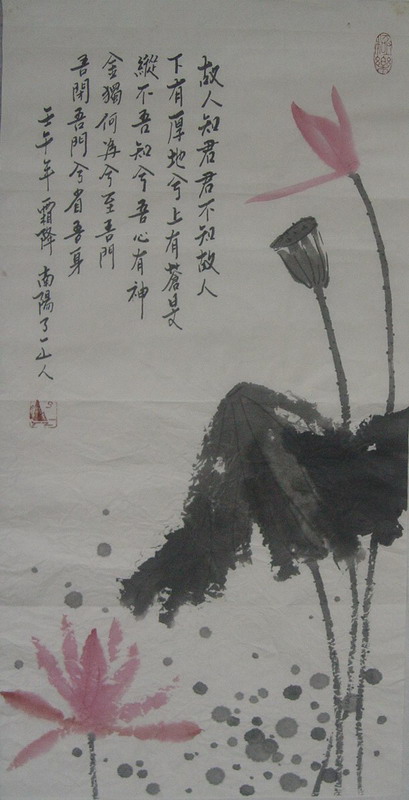 故人知君君不知故人
下有厚地兮上有蒼旻
縱不吾知兮吾心有神
金獨何為兮至吾門
吾閉吾門兮省吾身
壬午年霜降 南陽了一山人